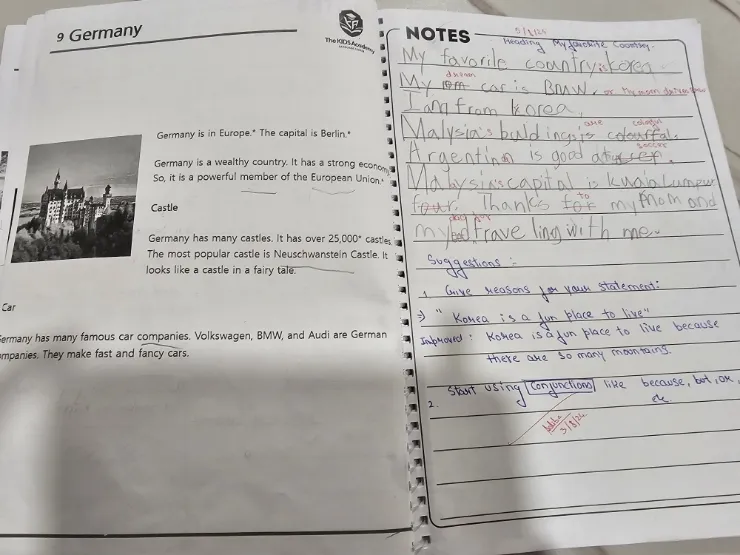 9 Germany
The KIDS Academy
Germany is in Europe.* The capital is Berlin.*
Germany is a wealthy country. It has a strong economy.
So, it is a powerful member of the European Union.*
Castle
Germany has many castles. It has over 25,000* castles.
The most popular castle is Neuschwanstein Castle. It
looks like a castle in a fairy tale.
Car
Germany has many famous car companies. Volkswagen, BMW, and Audi are German
ompanies. They make fast and fancy cars.
NOTES
Heading My favorite Country.
My favorite country is Korea
My car is BMW. or My mom drives
I am from Korea.
are
Malysia's buldings is colourful.
soccer
Argentina is good at
Malaysia's capital is kuala lumpur
four. Thanks for to my Mom and
my traveling with me.
Suggestions :-
1. Give reasons for your statement:
"Korea is a fun place to live"
Improved : Korea is a fun place to live because
there are so many mountains.
2. Start using Conjunctions like because, but, or,